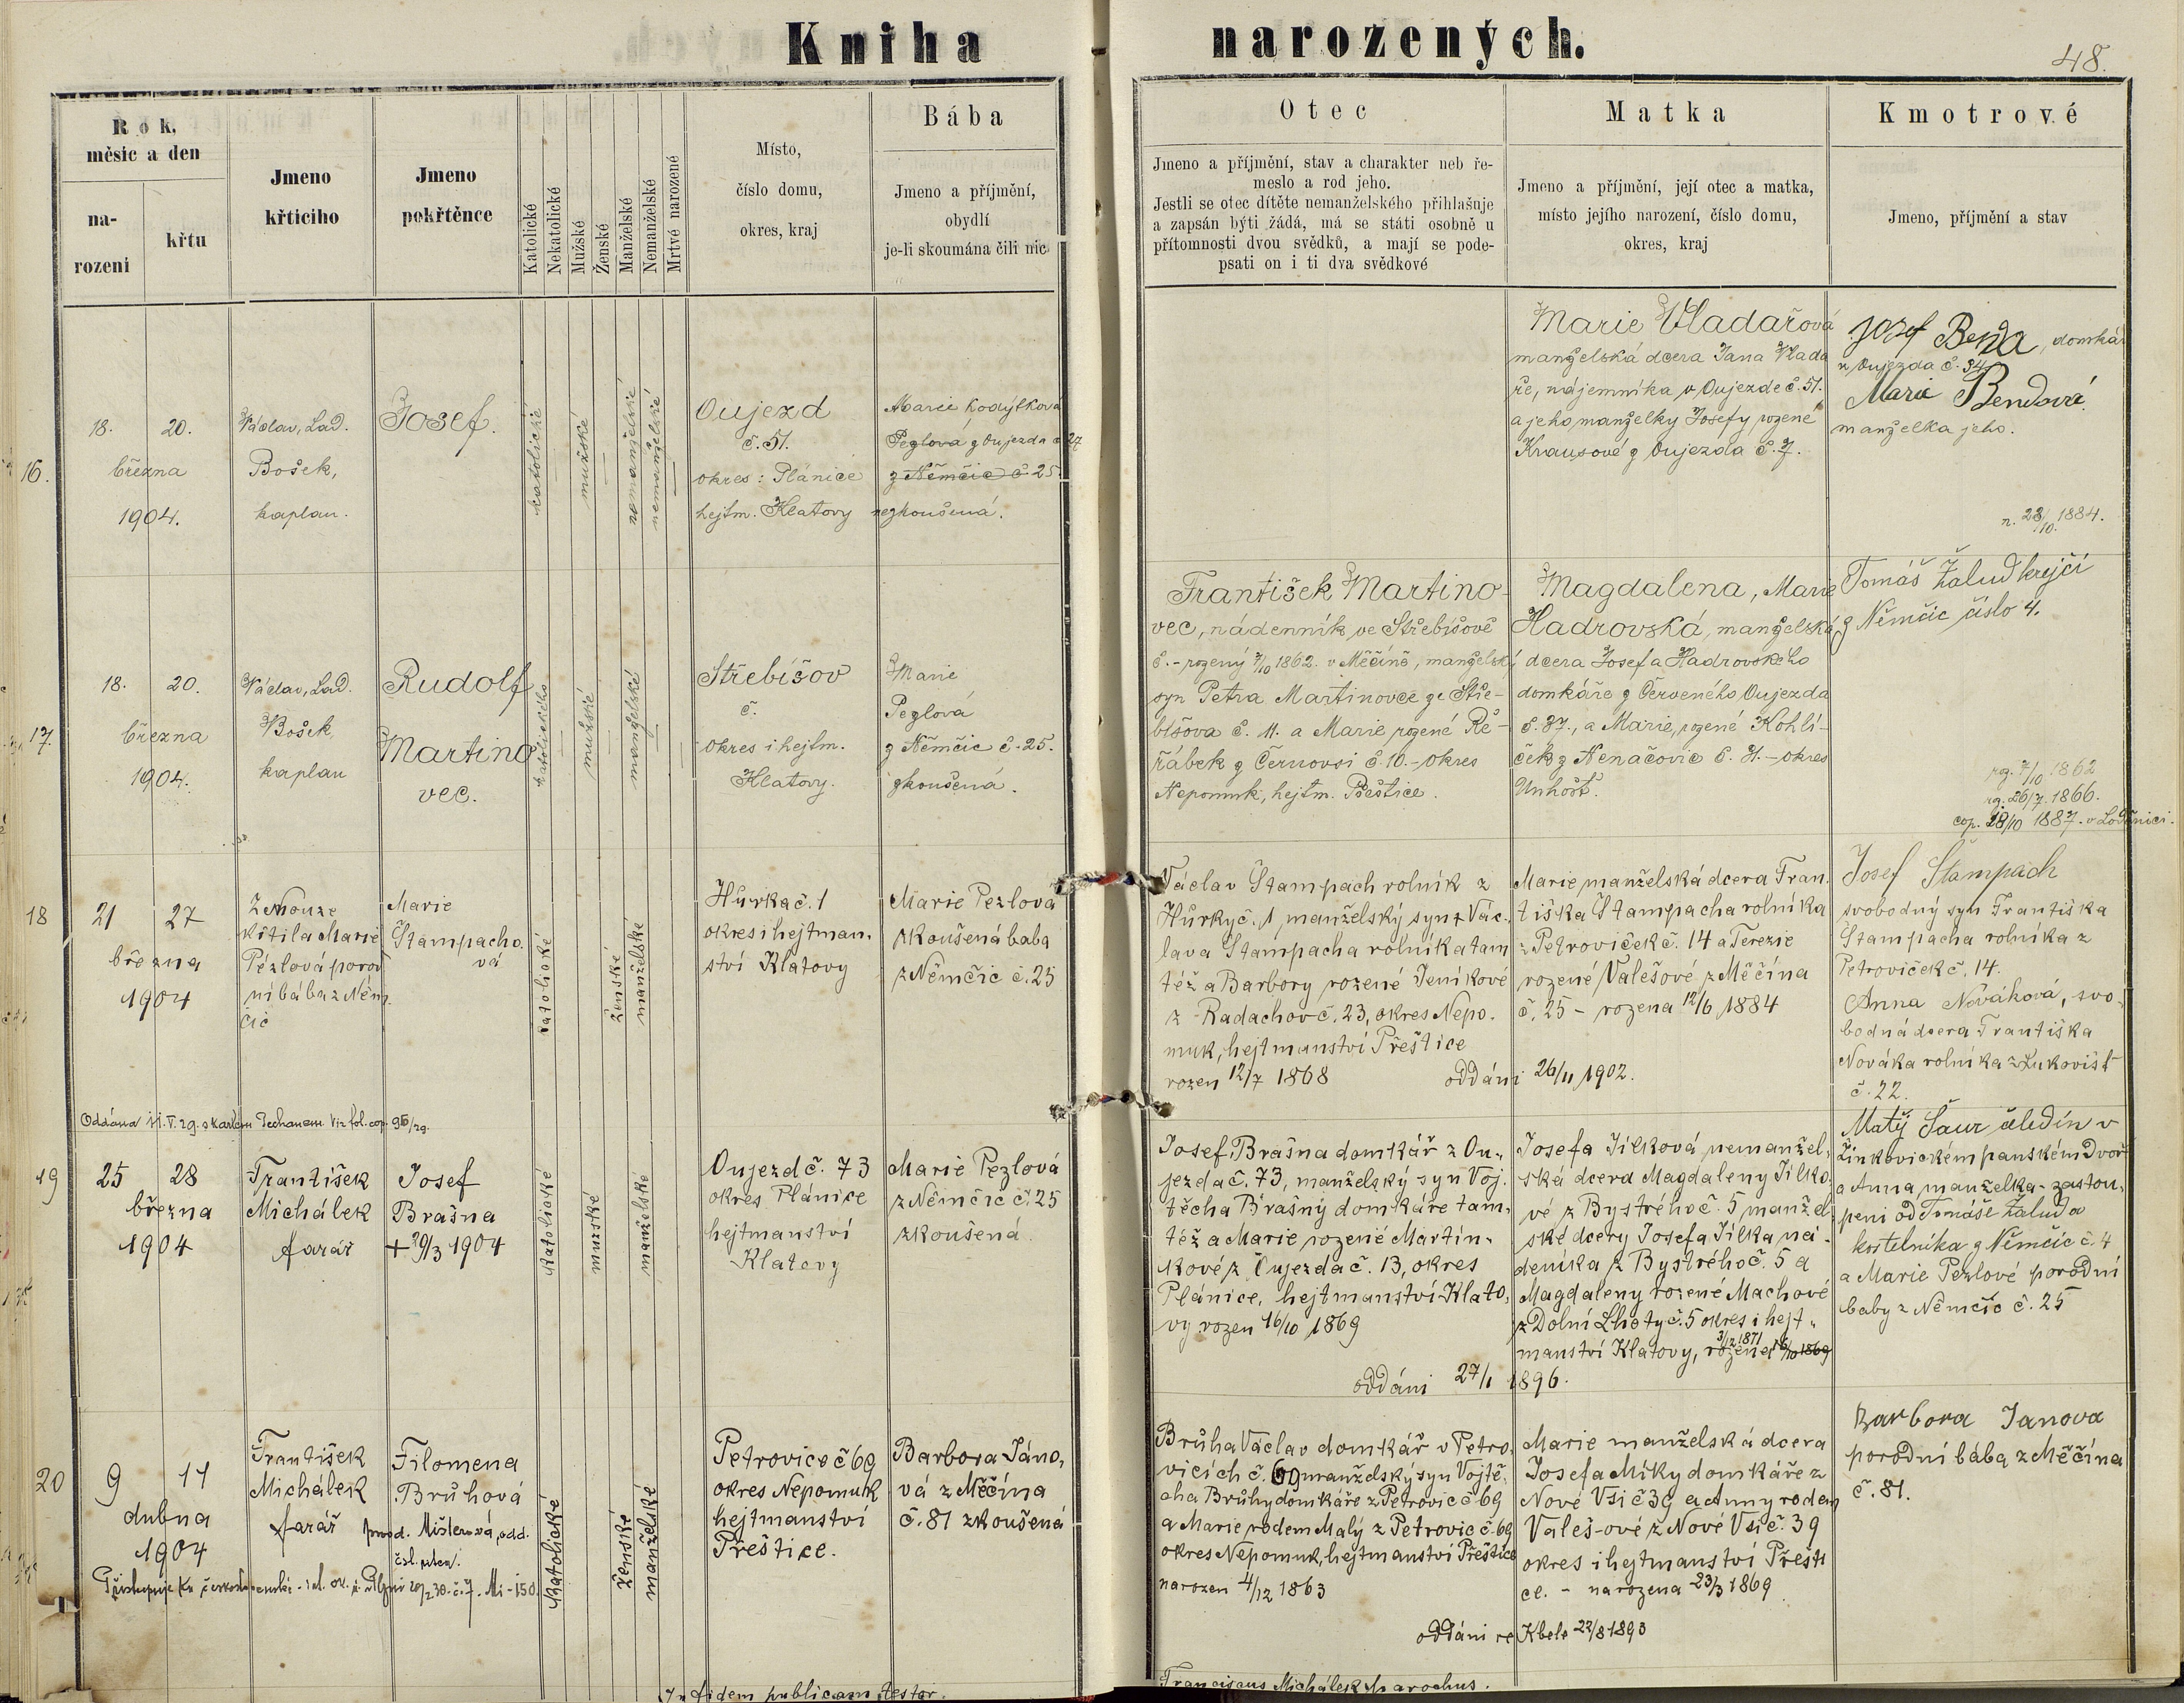 Kniha narozených.
48.
Rok,
měsíc a den
na-
rozeni
křtu
Jmeno
křticiho
Jmeno
pokřtěnce
Katolické
Nekatolické
Mužské
Ženské
Manželské
Nemanželské
Mrtvé narozené
Místo,
číslo domu,
okres, kraj
Bába
Jmeno a příjmění,
obydlí
je-li skoumána čili nic
Otec
Jmeno a příjmění, stav a charakter neb ře-
meslo a rod jeho.
Jestli se otec dítěte nemanželského přihlašuje
a zapsán býti žádá, má se státi osobně u
přítomnosti dvou svědků, a mají se pode-
psati on i ti dva svědkové
Matka
Jmeno a příjmění, její otec a matka,
místo jejího narození, číslo domu,
okres, kraj
Kmotrové
Jmeno, příjmění a stav
16.
18. 20.
března
1904.
Václav, Lad.
Bošek,
kaplan.
Josef.
katolické
mužské
nemanželské
nemanželské
Oujezd
č. 51.
okres: Plánice
hejtm. Klatovy
Marie Kodýtková
Pezlová z Oujezda č 27
z Němčic č. 25.
nezkoušená.
Marie Vladařová
manželská dcera Jana Vlada
ře, nájemníka v Oujezde č. 51.
a jeho manželky Josefy rozené
Krausové z Oujezda č. 7.
Josef Benda, domkář
z Oujezda č. 34
Marie Bendová
manželka jeho.
n. 28/10. 1884.
17.
18. 20.
března
1904.
Václav, Lad.
Bošek,
kaplan
Rudolf
Martino
vec.
katolického
mužské
manželské
Střebíšov
č.
okres i hejtm.
Klatovy.
Marie
Pezlová
z Němčic č. 25.
zkoušená.
František Martino-
vec, nádenník ve Střebíšově
č. - rozený 7/10 1862. v Měčíně, manželský
syn Petra Martinovce ze Stře-
bíšova č. 11. a Marie rozené Ře-
řábek z Černovsi č. 10. - okres
Nepomuk, hejtm. Přeštice.
Magdalena, Marie
Hadrovská, manželská
dcera Josefa Hadrovského
domkáře z Červeného Oujezda
č. 87., a Marie, rozené Kohlí-
ček z Nenačovic č. 31. - okres
Unhošť.
Tomáš Žalud krejčí
z Němčic číslo 4.
rz. 7/10 1862
rz. 26/7. 1866.
cop. 28/10 1887. v Loděnici.
18
21 27
března
1904
Z nouze
křtila Marie
Pézlová porod
ní bába z Něm
čic
Marie
Štampacho.
vá
katolické
ženské
manželské
Hůrka č. 1
okres i hejtman.
ství Klatovy
Marie Pezlová
zkoušená baba
z Němčic č. 25
Václav Štampach rolník z
Hůrky č. 1 manželský syn + Vác.
lava Štampacha rolníka tam
též a Barbory rozené Jeníkové
z Radachov č. 23, okres Nepo.
muk, hejtmanství Přeštice
rozen 12/7 1868
Marie manželská dcera Fran.
tiška Štampacha rolníka
z Petroviček č. 14 a Terezie
rozené Valešové z Měčína
č. 25 - rozena 12/6 1884
oddáni 26/11 1902.
Josef Štampach
svobodný syn Františka
Štampacha rolníka z
Petroviček č. 14.
Anna Nováková, svo.
bodná dcera Františka
Nováka rolníka z Lukovišť
č. 22.
Oddána 11. V. 29. s Karlem Techanem. Viz fol. cop. 96/29.
19
25 28
března
1904
František
Michálek
farář
Josef
Brašna
+ 29/3 1904
katolické
mužské
manželské
Oujezd č. 73
okres Plánice
hejtmanství
Klatovy
Marie Pezlová
z Němčic č. 25
zkoušená
Josef Brašna domkář z Ou.
jezda č. 73, manželský syn Voj.
těcha Brašny domkáře tam.
též a Marie rozené Martín.
kové z Oujezda č. 13, okres
Plánice, hejtmanství Klato,
vy rozen 16/10 1869
Josefa Jílková nemanžel.
ská dcera Magdaleny Jílko.
vé z Bystrého č. 5 manžel
ské dcery Josefa Jílka ná.
deníka z Bystrého č. 5 a
Magdaleny rozené Machové
z Dolní Lhoty č. 5 okres i hejt.
manství Klatovy, rozena 3/12 1871 16/10 1869
oddáni 27/1 1896.
Matěj Šaur čeledín v
Žinkovickém panském Dvoř
a Anna manželka - zastou.
peni od Tomáše Žaluda
kostelníka z Němčic č. 4
a Marie Pezlové porodní
baby z Němčic č. 25
20
9 11
dubna
1904
František
Michálek
farář
Filomena
Brůhová
prov. Mišterová, odd.
katolické
ženské
manželské
Petrovice č 69
okres Nepomuk
hejtmanství
Přeštice.
Barbora Jáno,
vá z Měčína
č. 81 zkoušená
Brůha Václav domkář v Petro.
vicích č. 69 manželský syn Vojtě.
cha Brůhy domkáře z Petrovic č 69
a Marie rodem Malý z Petrovic č. 69
okres Nepomuk, hejtmanství Přeštice
narozen 4/12 1863
Marie manželská dcera
Josefa Míky domkáře z
Nové Vsi č 39 a Anny rodem
Valeš-ové z Nové Vsi č. 39
okres i hejtmanství Přešti
ce. - narozena 23/3 1869
oddáni ve Kbele 22/8 1893
Barbora Janova
porodní bába z Měčína
č. 81.
In fidem publicam testor.
Franciscus Michálek parochus.